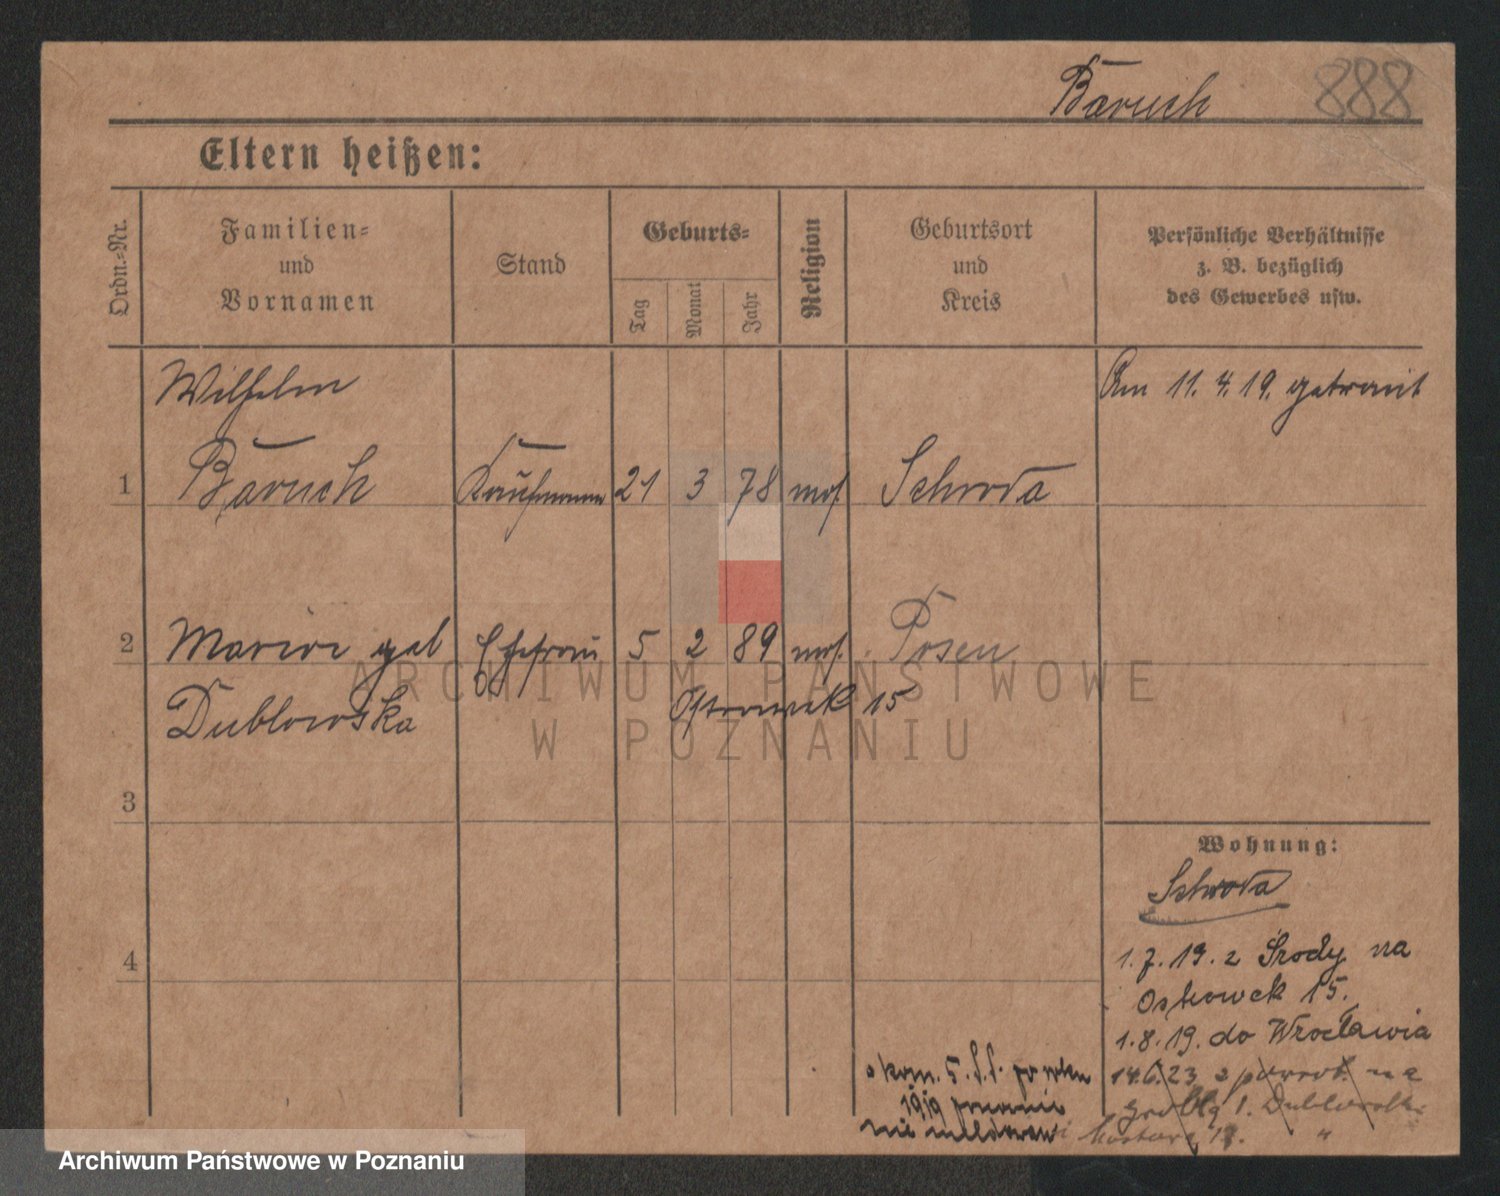 Baruch 888
Eltern heißen:
Ordn.-Nr.
Familien-
und
Vornamen
Stand
Geburts-
Tag
Monat
Jahr
Religion
Geburtsort
und
Kreis
Persönliche Verhältnisse
z. B. bezüglich
des Gewerbes usw.
Wilhelm
Am 11.4.19. getraut
1 Baruch Kaufmann 21 3 78 mos. Schroda
2 Marie geb Ehefrau 5 2 89 mos. Posen
Dublowska Ostrowek 15
ARCHIWUM PAŃSTWOWE
W POZNANIU
3
4
Wohnung:
Schroda
1.7.19. z Środy na
Ostrowek 15.
1.8.19. do Wrocławia
14.6.23 z powrot. na
Groblą 1. Dublowski
kom. 5.
1919
nie
Archiwum Państwowe w Poznaniu